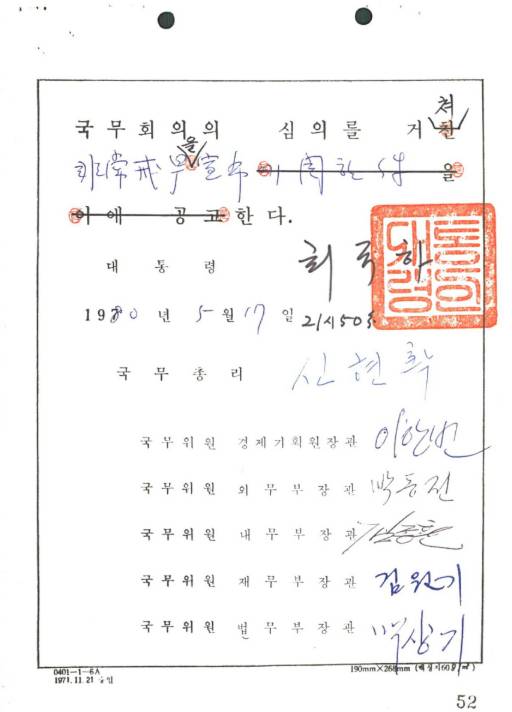 국무회의의 심의를 거쳐
非常戒嚴을 宣布
이에 공고한다.
대통령 최규하
대통령의인
1980년 5월 17일 21시50분
국무총리 신현확
국무위원 경제기획원장관 이한빈
국무위원 외무부장관 박동진
국무위원 내무부장관 김종환
국무위원 재무부장관 김원기
국무위원 법무부장관 백상기
0401-1-6A
1971.11.21 승인
190mm×268mm (백상지60g/㎡)
52